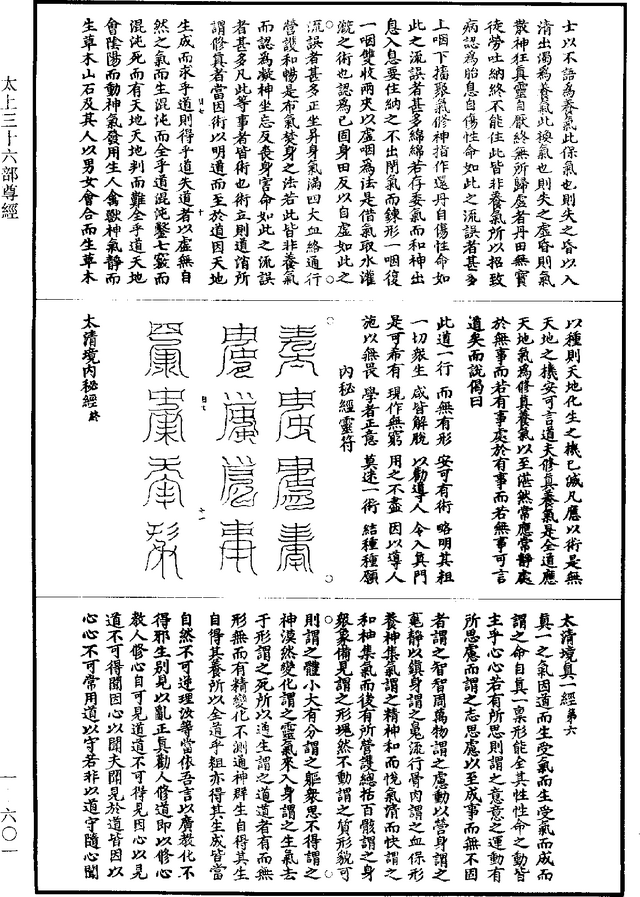 太上三十六部尊經
士以不語為養氣此保氣也則失之昏以入
清出濁為養氣此換氣也則失之虛昏則氣
散神狂真靈日厭終無所歸虛者丹田無寶
徒勞吐納終不能住此皆非養氣所以招致
病認為胎息自傷性命如此之流誤者甚多
上咽下搐聚氣修神指作還丹自傷性命如
此之流誤者甚多綿綿若存委氣而和神出
息入息要住納之不出閉氣而鍊形一咽復
一咽雙收兩夾以虛咽為法是借氣取水灌
溉之術也認為已固身田反以自虛如此之
流誤者甚多正坐昇身氣滿四大血絡通行
營護和暢是布氣焚身之法若此皆非養氣
而認為凝神坐忘反喪身害命如此之流誤
者甚多凡此等事者皆術也術立則道消所
謂修真者當因術以明道而至於道因天地
生成而求乎道則得乎道失道者以虛無自
然之氣而生混沌而全乎道混沌鑿七竅而
混沌死而有天地天地判而難全乎道天地
會陰陽而動神氣發用生人禽獸神氣靜而
生草木山石及其人以男女會合而生草木
以種則天地化生之機已滅凡應以術是無
天地之機安可言道夫修真養氣是全道應
天地氣為修真養氣以至湛然常應常靜處
於無事而若有事處於有事而若無事可言
道矣而說偈曰
此道一行 而無有形 安可有術 略明其粗
一切眾生 咸皆解脫 以勸導人 令入真門
是可希有 現作無窮 用之不盡 因以導人
施以無畏 學者正意 莫迷一術 結種種願
內秘經靈符
太清境內秘經終
太清境真一經第六
真一之氣因道而生受氣而生受氣而成而
謂之命自真一稟形能全其性性命之動皆
主乎心心若有所思則謂之意意之運動有
所思慮而謂之志思慮以至成事而無不因
者謂之智智周萬物謂之慮動以營身謂之
魂靜以鎮身謂之魄流行骨肉謂之血保形
養神集氣謂之精神和而悅氣清而快謂之
和柚集氣而後有所營護總括百骸謂之身
眾象備見謂之形塊然不動謂之質形貌可
則謂之體小大有分謂之軀眾思不得謂之
神漠然變化謂之靈氣來入身謂之生氣去
于形謂之死所以通生謂之道道者有而無
形無而有精變化不測通神群生自得其生
自得其養所以全道乎粗亦得其生成皆當
自然不可逆理汝等當依吾言以廣教化不
得邪生別見以亂正真勸人修道即以修心
教人修心自可見道道不可得見因心以見
道不可得聞因心以聞夫聞見於道皆因以
心心不可常用道以守若非以道守隨心聞
一—六〇一